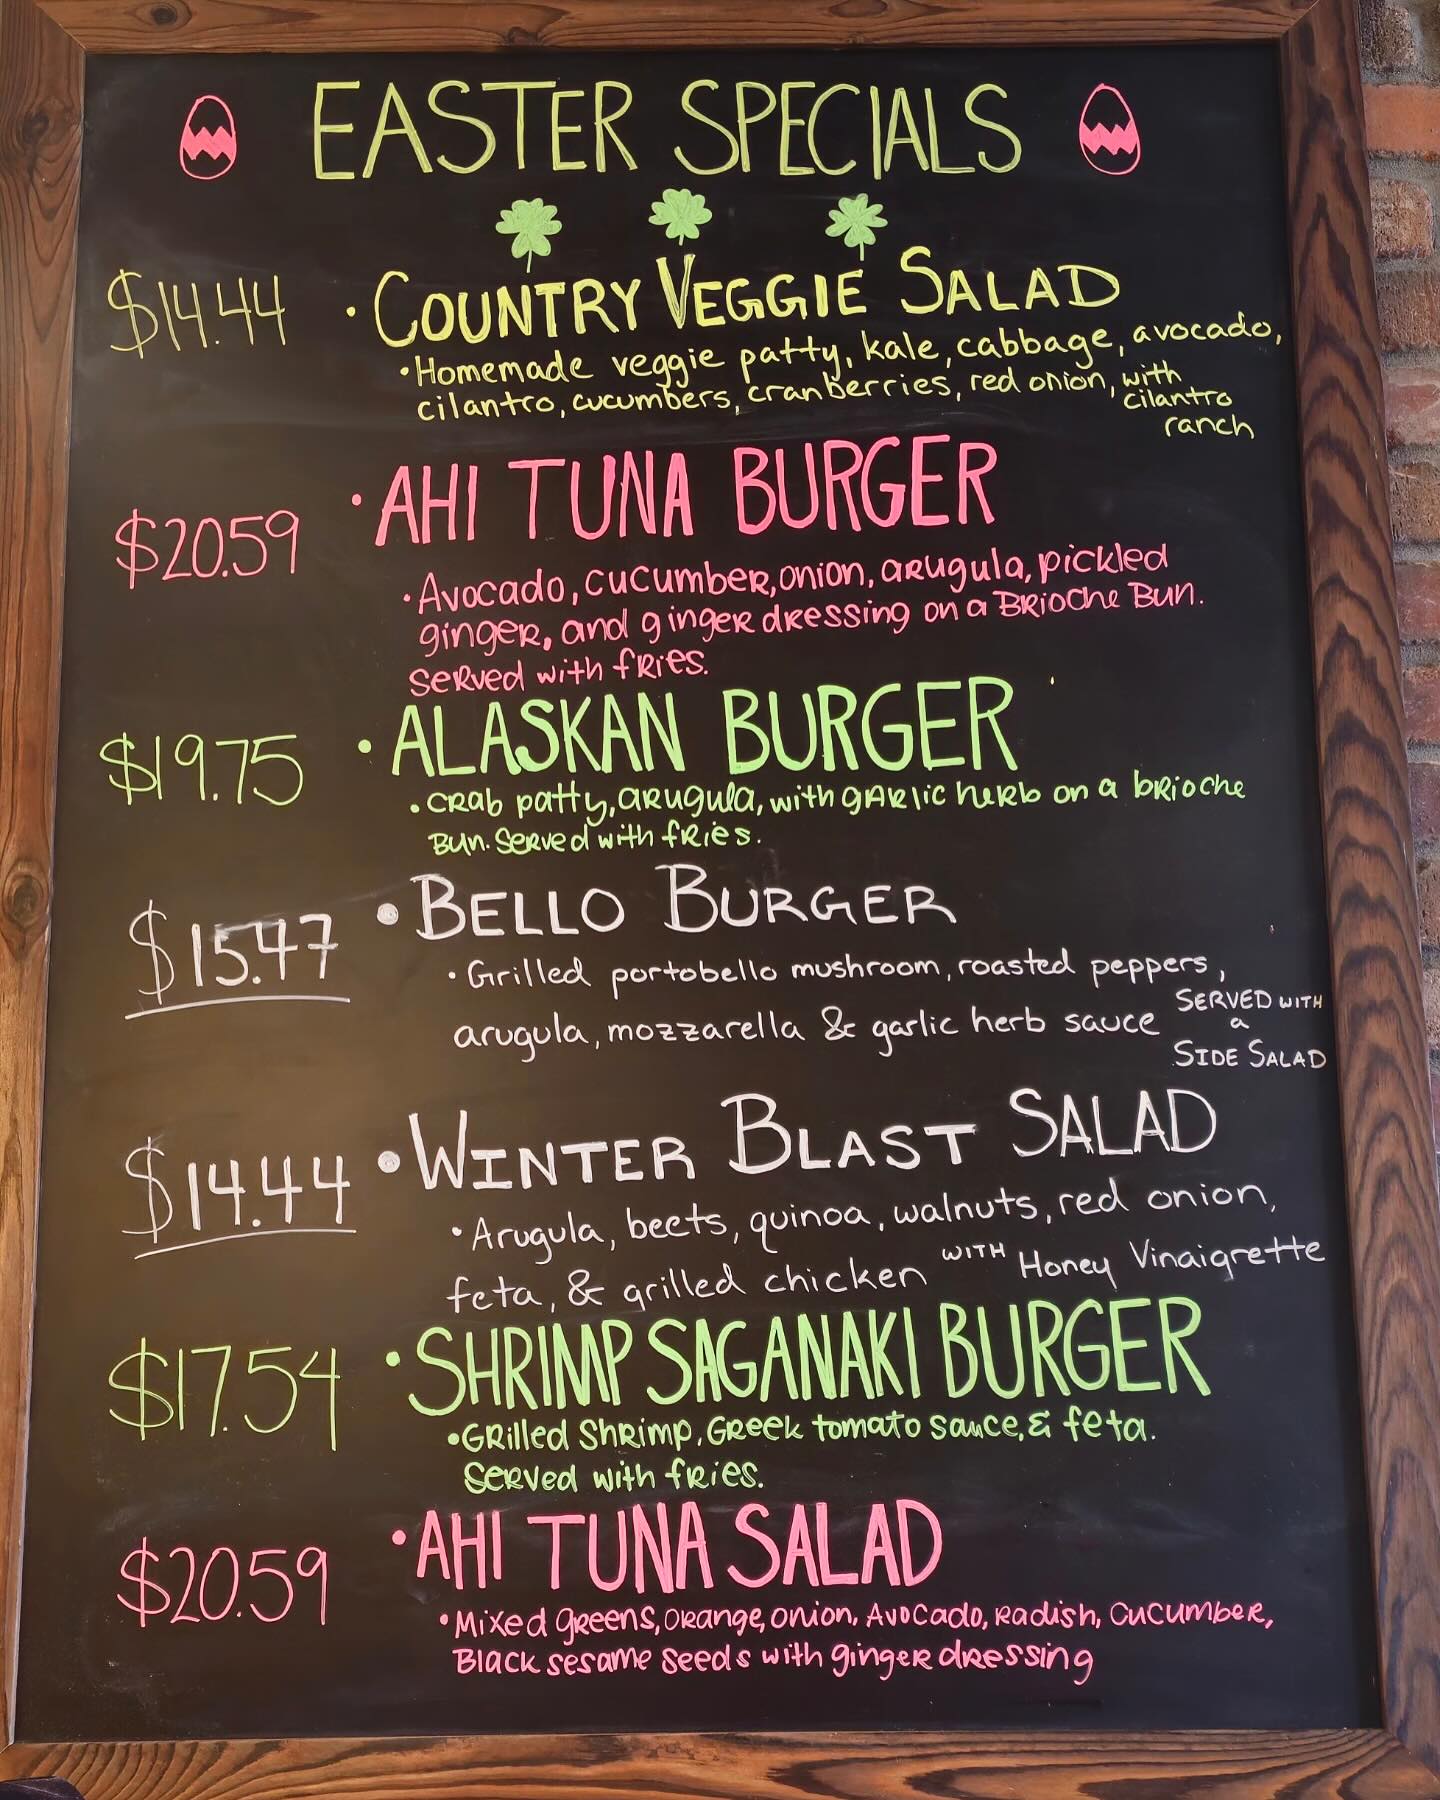 EASTER SPECIALS
$14.44 • COUNTRY VEGGIE SALAD
• Homemade veggie patty, kale, cabbage, avocado,
cilantro, cucumbers, cranberries, red onion, with
cilantro
ranch
$20.59 • AHI TUNA BURGER
• Avocado, cucumber, onion, arugula, pickled
ginger, and ginger dressing on a Brioche Bun.
Served with fries.
$19.75 • ALASKAN BURGER
• Crab patty, arugula, with garlic herb on a brioche
Bun. Served with fries.
$15.47 • BELLO BURGER
• Grilled portobello mushroom, roasted peppers,
arugula, mozzarella & garlic herb sauce SERVED WITH
a
SIDE SALAD
$14.44 • WINTER BLAST SALAD
• Arugula, beets, quinoa, walnuts, red onion,
feta, & grilled chicken WITH Honey Vinaigrette
$17.54 • SHRIMP SAGANAKI BURGER
• Grilled Shrimp, Greek tomato sauce, & feta.
Served with fries.
$20.59 • AHI TUNA SALAD
• Mixed greens, orange, onion, Avocado, radish, cucumber,
Black sesame seeds with ginger dressing